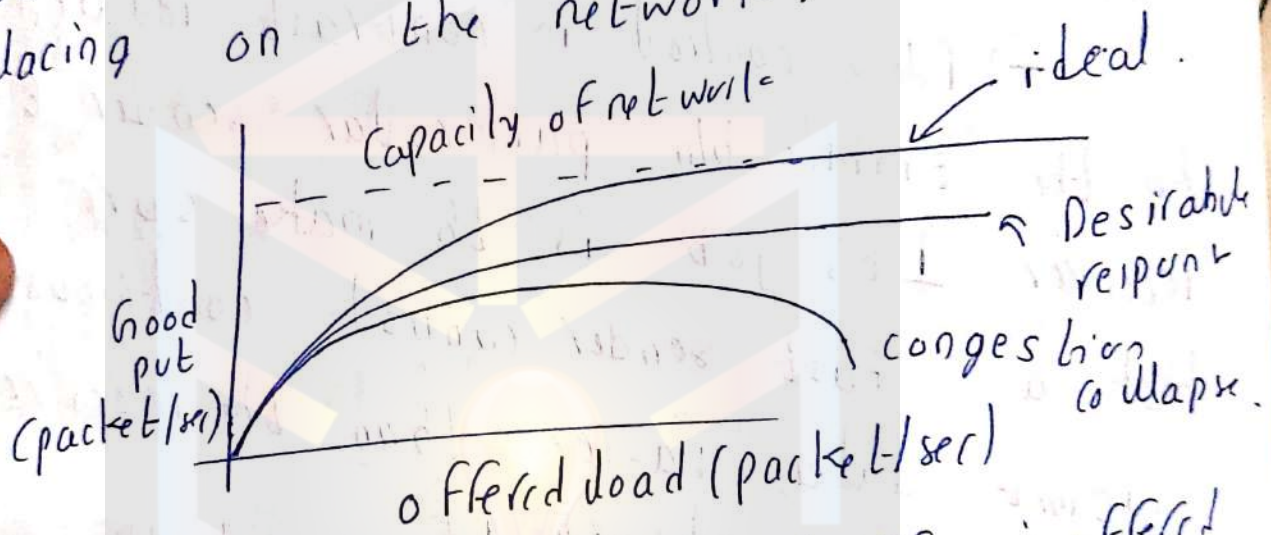 lacing on the networ
Capacity of network
ideal.
Desirable
respons
Good
put
(packet/sec)
congestion
collapse.
offered load (packet/sec)
offered